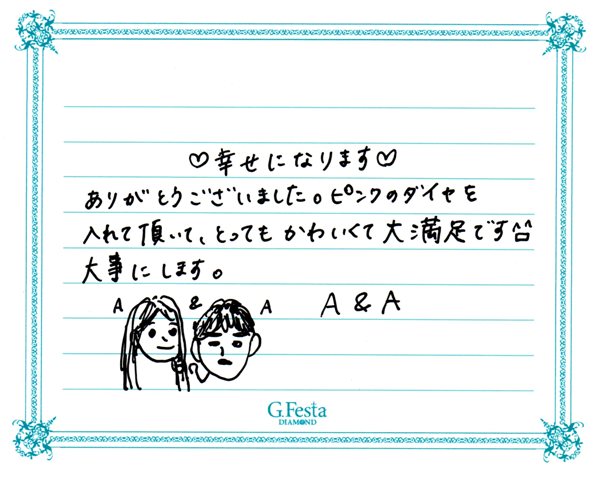 ♡幸せになります♡
ありがとうございました。ピンクのダイヤを
入れて頂いて、とってもかわいくて大満足です
大事にします。
A & A
A & A
G.Festa
DIAMOND